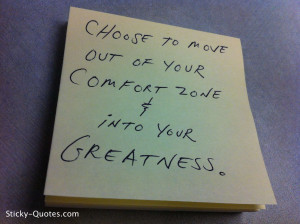 CHOOSE TO MOVE
OUT OF YOUR
COMFORT ZONE
&
INTO YOUR
GREATNESS.
Sticky-Quotes.com